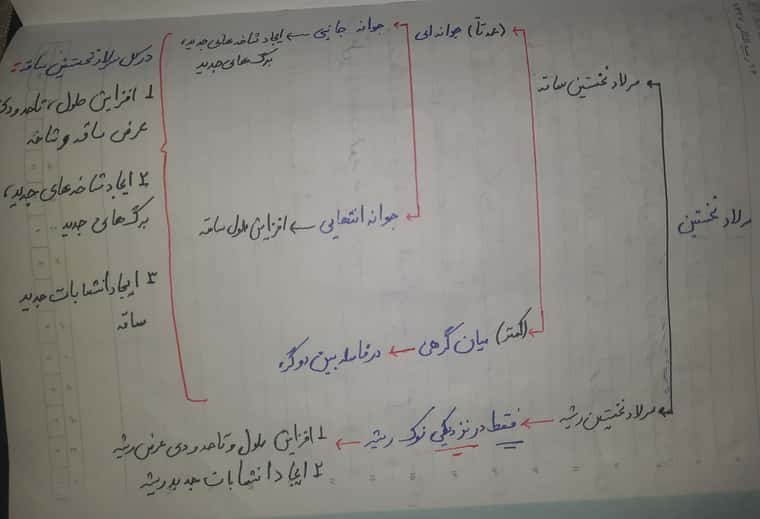 مرلاد نخستین
مرلاد نخستین ساقه
(عمدتاً) جوانه‌ای
جوانه جانبی ← ایجاد شاخه‌های جدید،
برگ‌های جدید
جوانه انتهایی ← افزایش طول ساقه
(کمتر) میان گرهی ← در فاصله بین دو گره
در کل مرلاد نخستین ساقه:
۱ افزایش طول، تا حدودی
عرض ساقه و شاخه
۲ ایجاد شاخه‌های جدید،
برگ‌های جدید
۳ ایجاد انشعابات جدید
ساقه
مرلاد نخستین ریشه ← فقط در نزدیکی نوک ریشه ← ۱ افزایش طول و تا حدودی عرض ریشه
۲ ایجاد انشعابات جدید ریشه